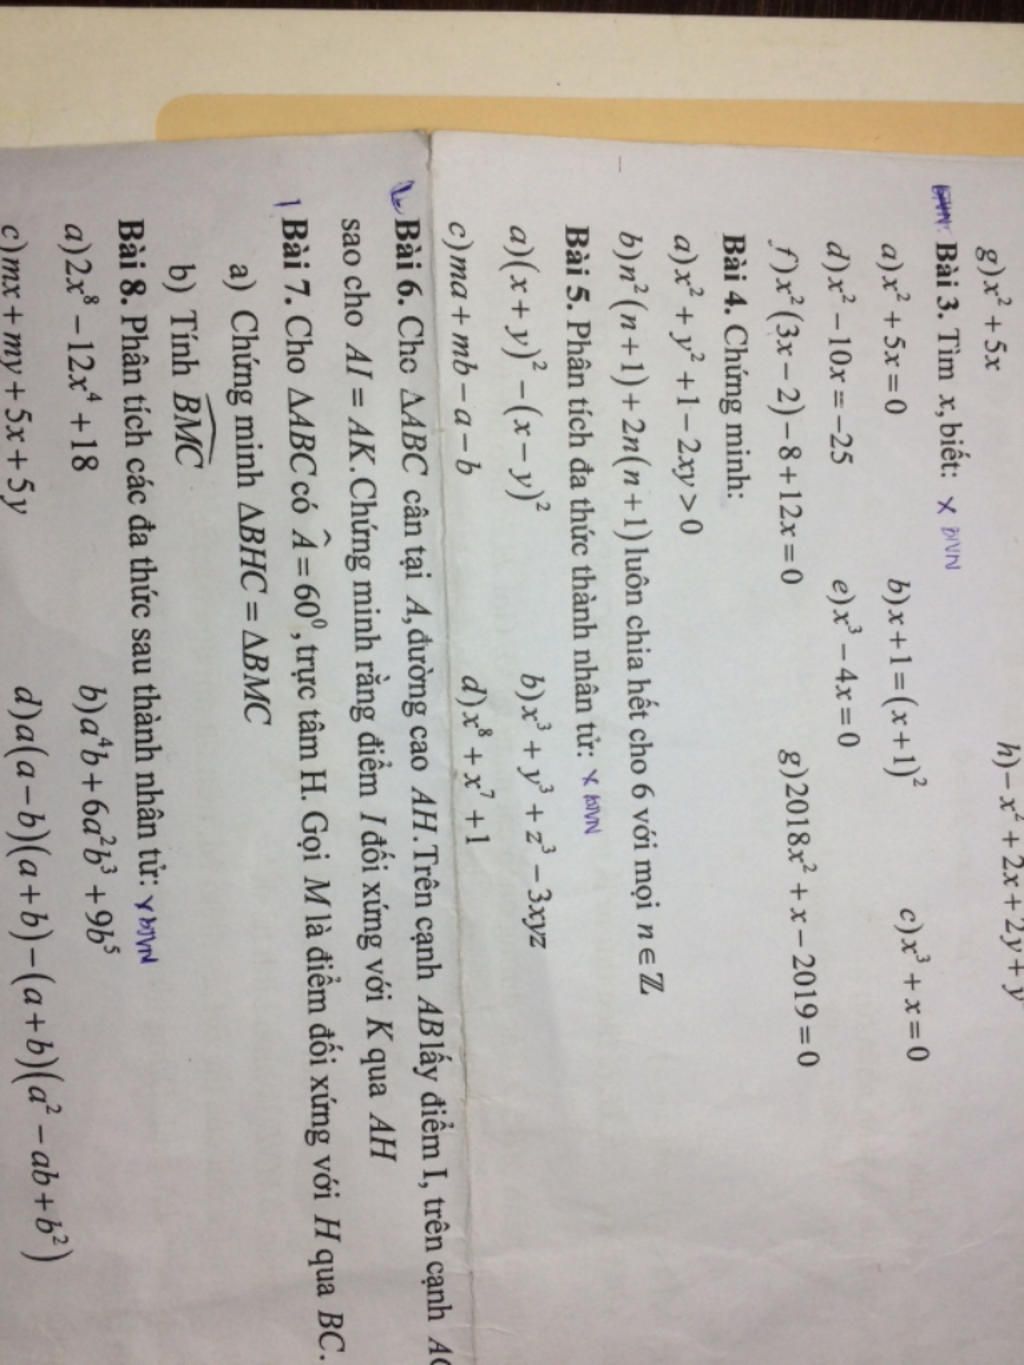 g)x² + 5x h)– x² + 2x + 2y + y
Bài 3. Tìm x, biết: x BTVN
a)x² + 5x = 0 b)x + 1 = (x + 1)² c)x³ + x = 0
d)x² – 10x = –25 e)x³ – 4x = 0
f)x²(3x – 2) – 8 + 12x = 0 g)2018x² + x – 2019 = 0
Bài 4. Chứng minh:
a)x² + y² + 1 – 2xy > 0
b)n²(n + 1) + 2n(n + 1) luôn chia hết cho 6 với mọi n ∈ ℤ
Bài 5. Phân tích đa thức thành nhân tử: x BTVN
a)(x + y)² – (x – y)² b)x³ + y³ + z³ – 3xyz
c)ma + mb – a – b d)x⁸ + x⁷ + 1
2 Bài 6. Cho ΔABC cân tại A, đường cao AH. Trên cạnh AB lấy điểm I, trên cạnh AC
sao cho AI = AK. Chứng minh rằng điểm I đối xứng với K qua AH
1 Bài 7. Cho ΔABC có Â = 60⁰, trực tâm H. Gọi M là điểm đối xứng với H qua BC.
a) Chứng minh ΔBHC = ΔBMC
b) Tính \widehat{BMC}
Bài 8. Phân tích các đa thức sau thành nhân tử: x BTVN
a)2x⁸ – 12x⁴ + 18 b)a⁴b + 6a²b³ + 9b⁵
c)mx + my + 5x + 5y d)a(a – b)(a + b) – (a + b)(a² – ab + b²)